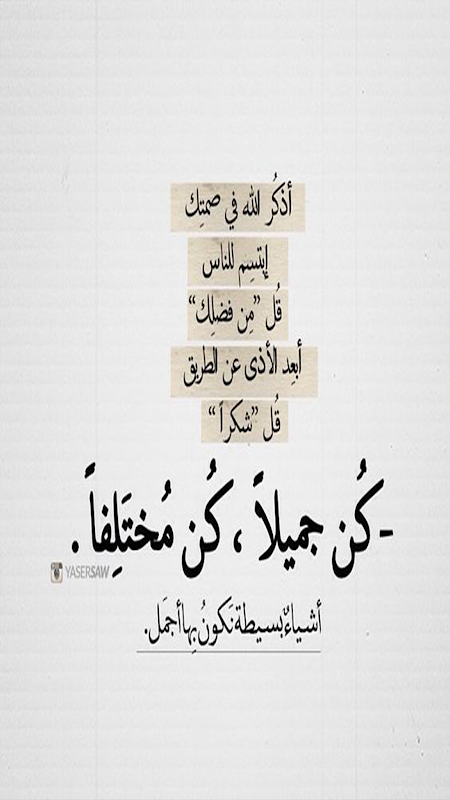 أذكُر الله في صمتِك
إبتسِم للناس
قُل ”مِن فضلِك“
أبعِد الأذى عن الطريق
قُل ”شكراً“
-كُن جميلاً ، كُن مُختَلِفاً .
YASERSAW
أشياءٌ بسيطة نَكونُ بِها أجمَل.